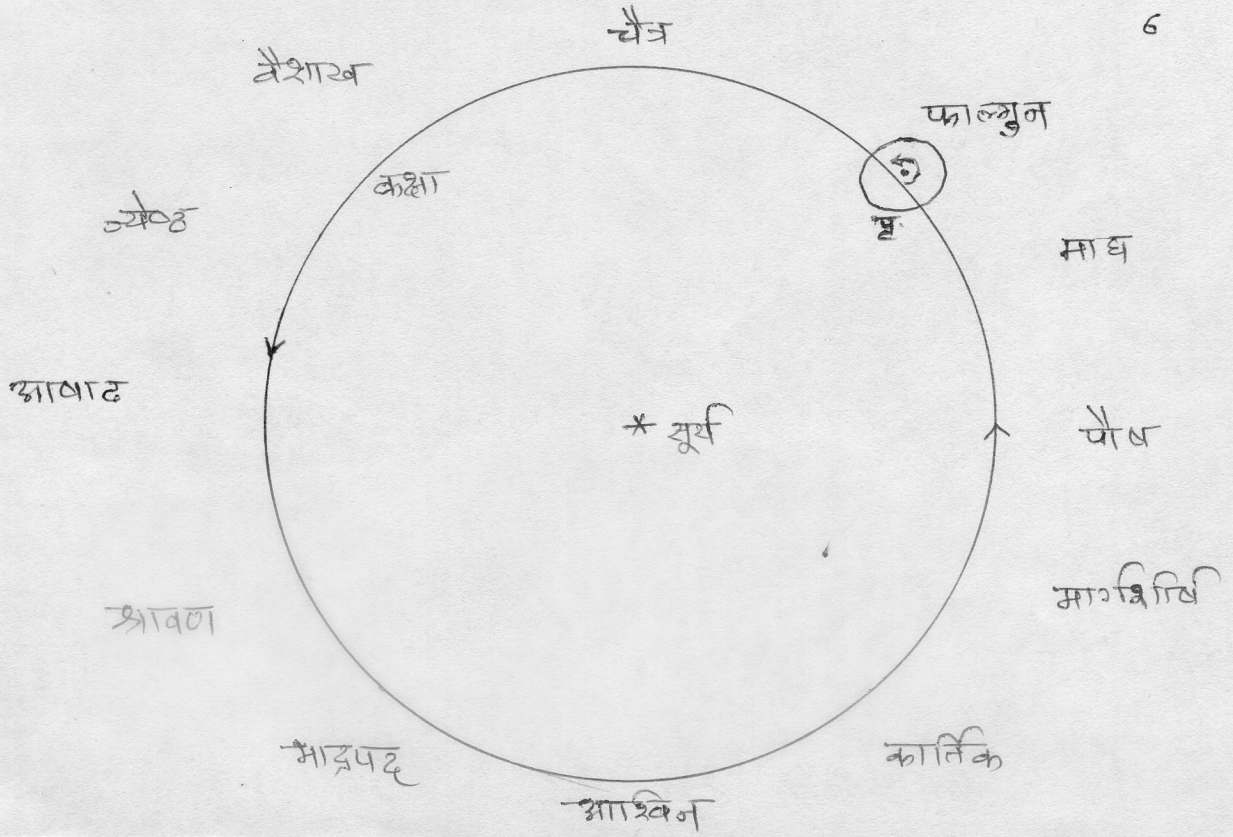 6
चैत्र
वैशाख
फाल्गुन
कक्षा
ज्येष्ठ
पृ.
माघ
आषाढ
सूर्य
पौष
मार्गशिर्ष
श्रावण
भाद्रपद
कार्तिक
आश्विन